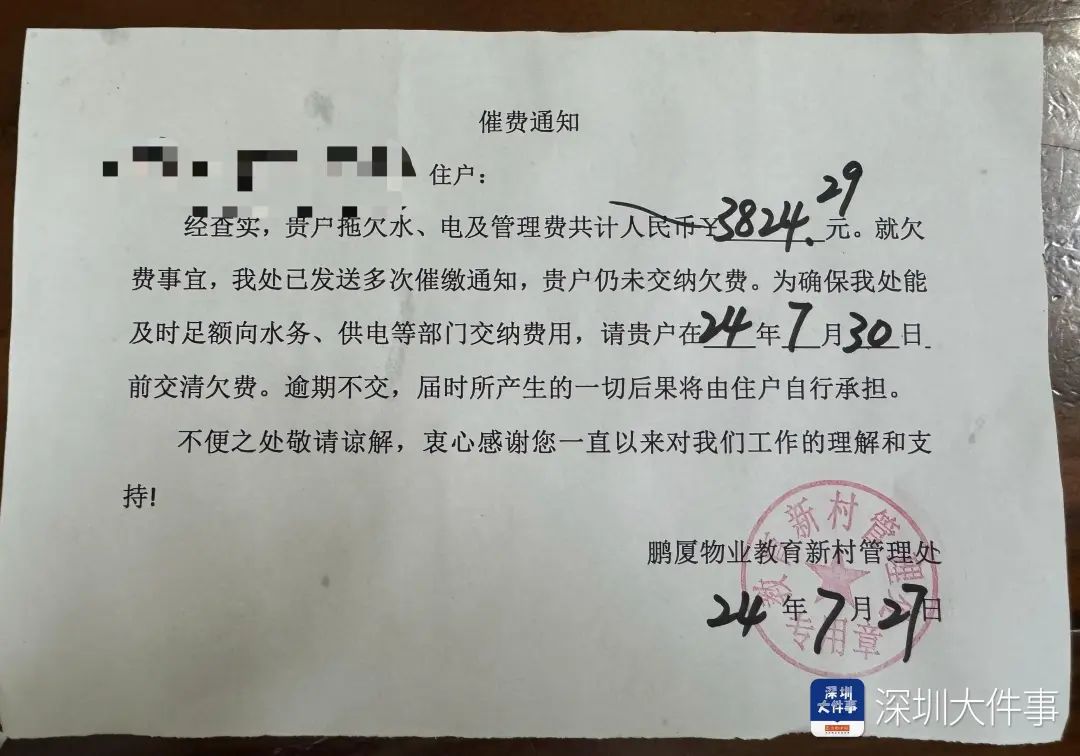 催费通知
住户：
经查实，贵户拖欠水、电及管理费共计人民币¥3824.29元。就欠
费事宜，我处已发送多次催缴通知，贵户仍未交纳欠费。为确保我处能
及时足额向水务、供电等部门交纳费用，请贵户在24年7月30日
前交清欠费。逾期不交，届时所产生的一切后果将由住户自行承担。
不便之处敬请谅解，衷心感谢您一直以来对我们工作的理解和支
持!
鹏厦物业教育新村管理处
24年7月27日
教育新村管理处
专用章
深圳大件事
深圳大件事